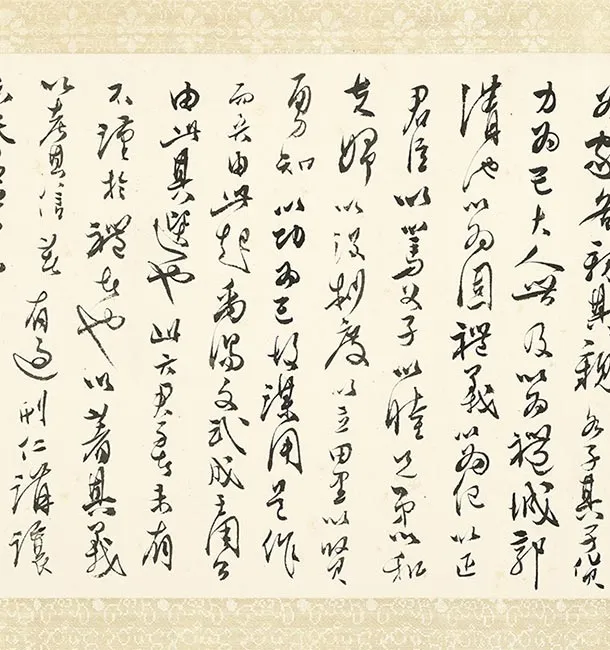 為家各親其親各子其子貨
力為己大人世及以為禮城郭
溝池以為固禮義以為紀以正
君臣以篤父子以睦兄弟以和
夫婦以設制度以立田里以賢
勇知以功為己故謀用是作
而兵由此起禹湯文武成王周公
由此其選也此六君子者未有
不謹於禮者也以著其義
以考其信著有過刑仁講讓